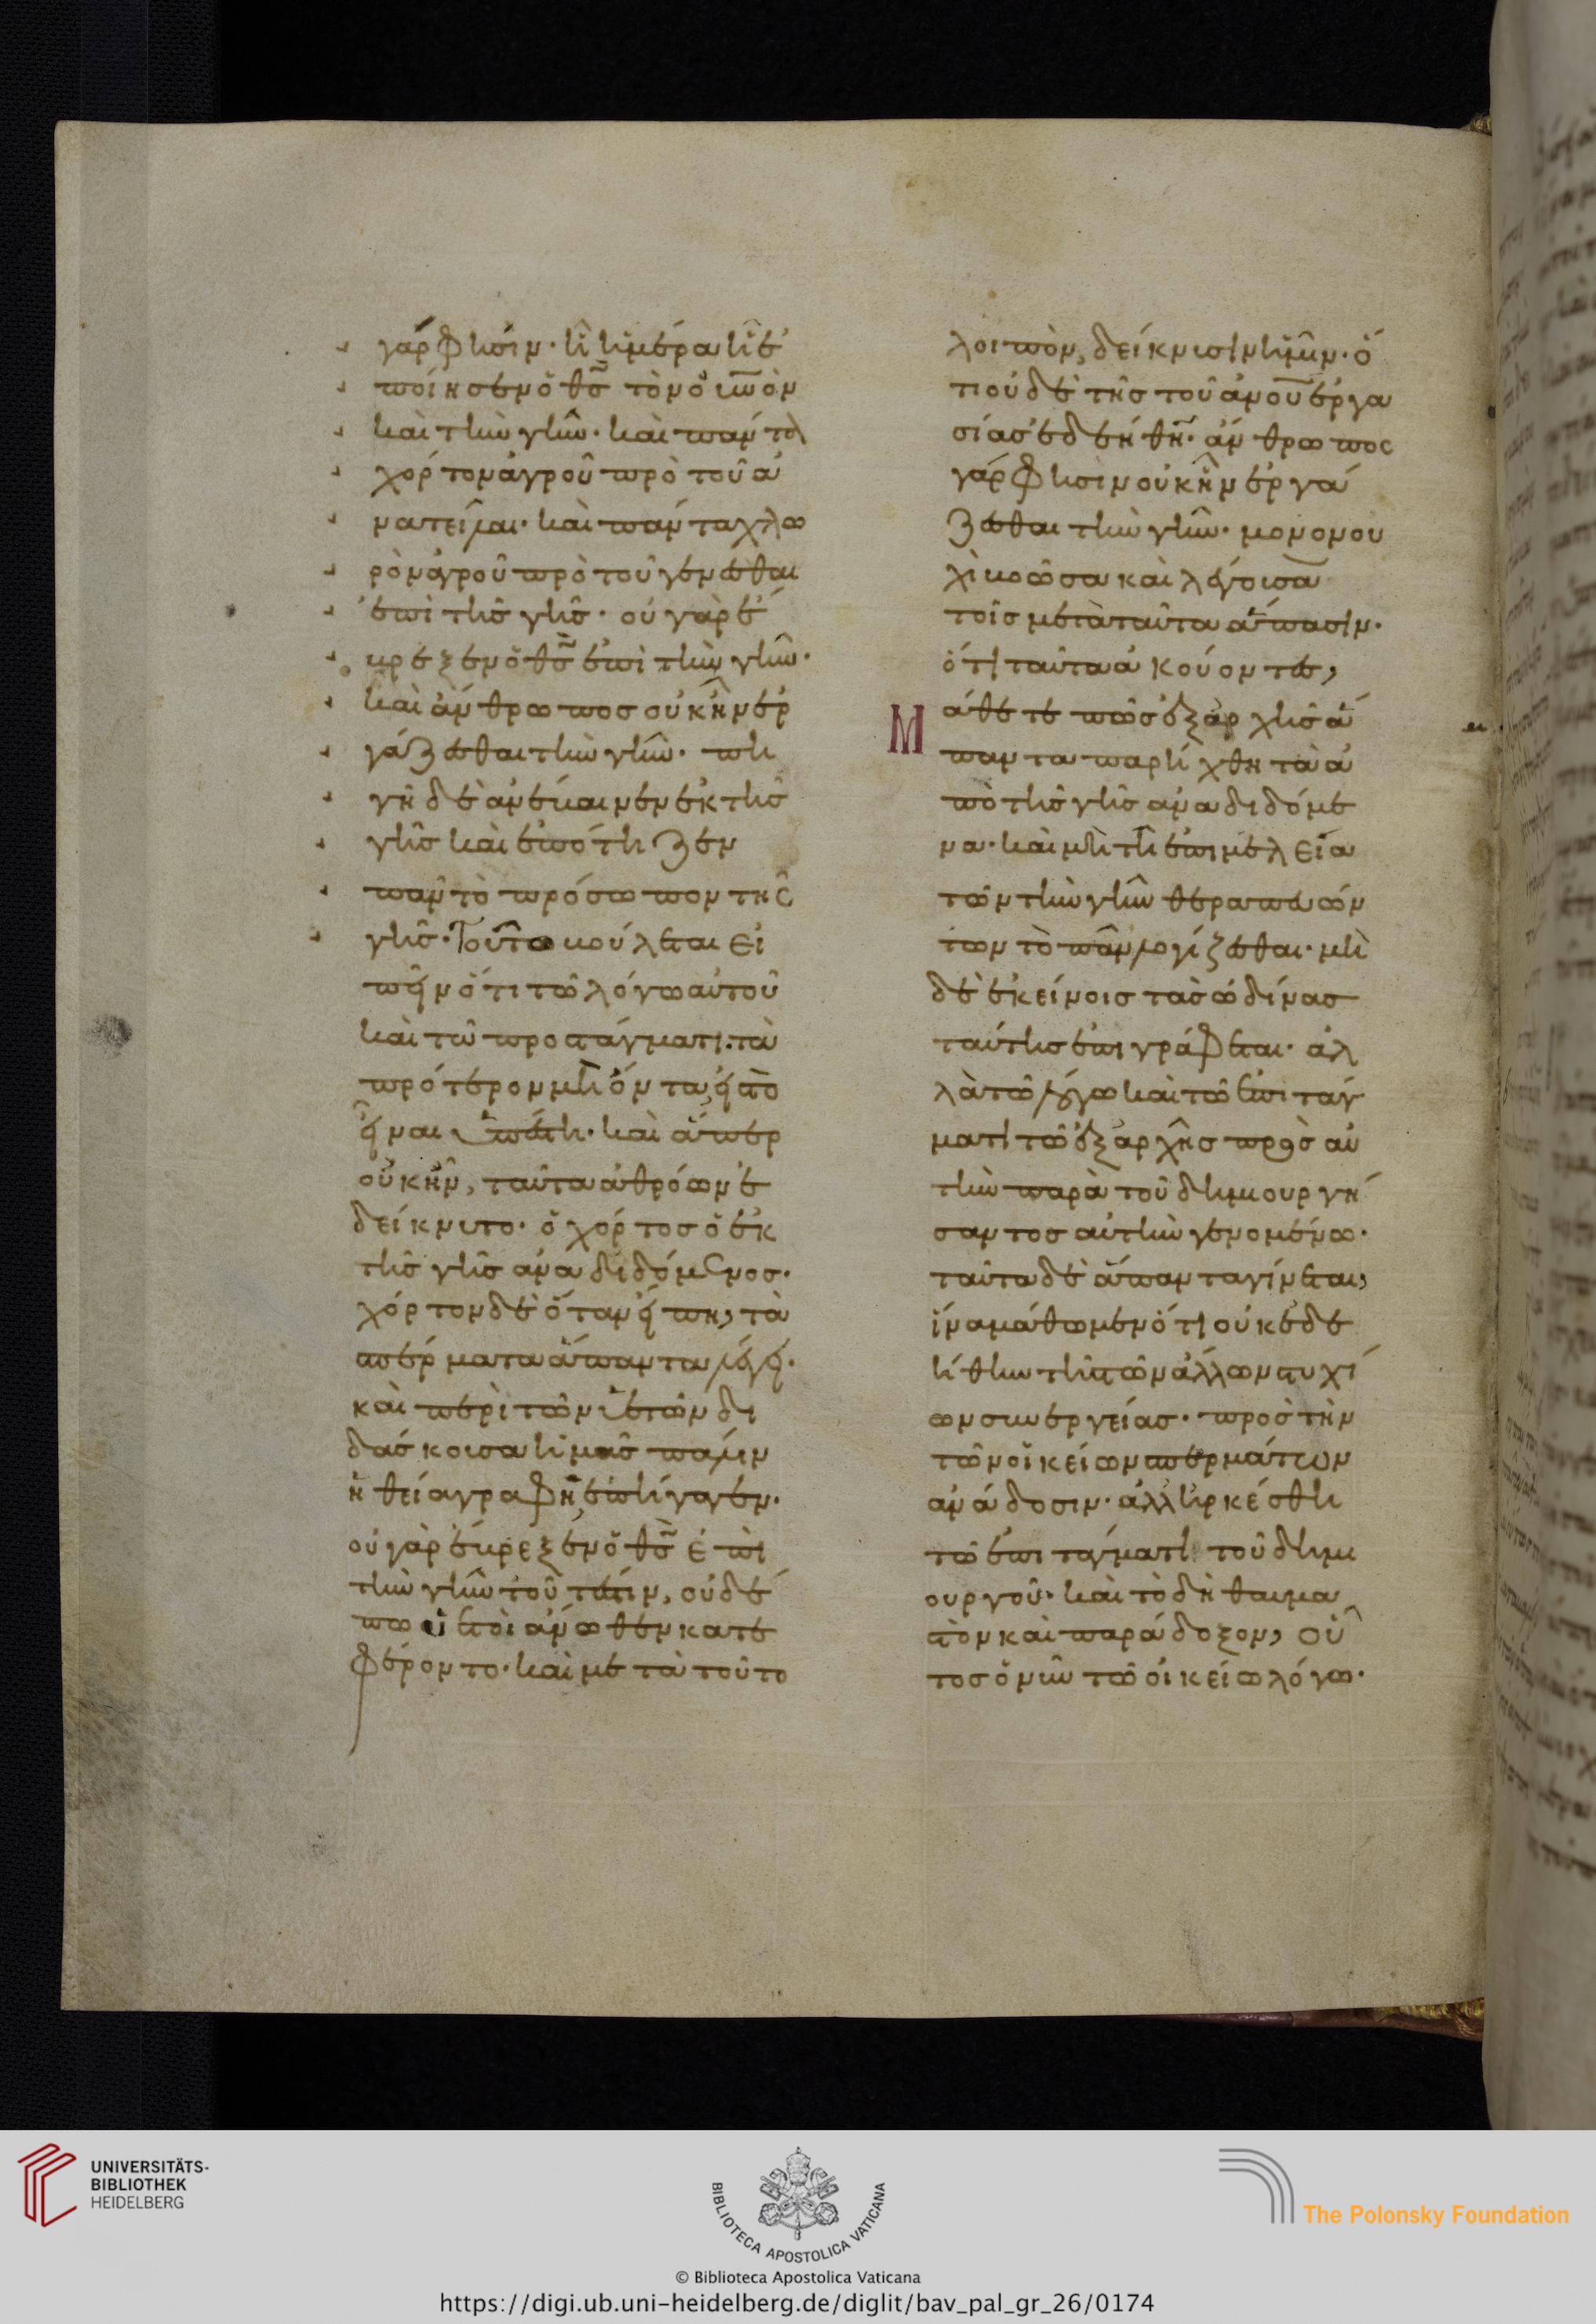 γάρ φησιν· ἧ ἡμέρα ἧ ἐ
ποίησεν ὁ θς τὸν ουνον
καὶ τὴν γῆν· καὶ πάντα
χόρτον ἀγροῦ πρὸ τοῦ ἀ
νατεῖλαι· καὶ πάντα χλω
ρὸν ἀγροῦ πρὸ τοῦ γενέσθαι
ἐπὶ τῆς γῆς· οὐ γὰρ ἔ
βρεξεν ὁ θς ἐπὶ τὴν γῆν·
καὶ ἄνθρωπος οὐκ ἦν ἐρ
γάζεσθαι τὴν γῆν· πη
γὴ δὲ ἀνέβαινεν ἐκ τῆς
γῆς καὶ ἐπότιζεν
πᾶν τὸ πρόσωπον τῆς
γῆς· Τοῦτο βούλεται εἰ
πεῖν ὅτι τῶ λόγω αὐτοῦ
καὶ τῶ προστάγματι· τὰ
πρότερον μὴ ὄντα, εἰς τὸ
εἶναι ὑπέστη· καὶ ἅπερ
οὐκ ἦν, ταῦτα ἀθρόων ἐ
δείκνυτο· ὁ χόρτος ὁ ἐκ
τῆς γῆς ἀναδιδόμενος·
χόρτον δὲ ὅταν εἴπη, τὰ
σπέρματα ἅπαντα λέγει·
καὶ περὶ τῶν ὑετῶν δι
δάσκουσα ἡμᾶς πάλιν
ἡ θεία γραφὴ ἐπήγαγεν·
οὐ γὰρ ἔβρεξεν ὁ θς ἐπὶ
τὴν γῆν τουτέστιν, οὐδέ
πω ὑετοὶ ἄνωθεν κατε
φέροντο· καὶ μετὰ τοῦτο
λοιπὸν, δείκνυσιν ἡμῖν· ὅ
τι οὐδὲ τῆς τοῦ ανου ἐργα
σίας ἐδεήθη· ἄνθρωπος
γάρ φησιν οὐκ ἦν ἐργά
ζεσθαι τὴν γῆν· μονονου
χὶ βοῶσα καὶ λέγουσα
τοῖς μετὰ ταῦτα ἅπασιν·
ὅτι ταῦτα ἀκούοντες,
Μ
άθετε πῶς ἐξαρχῆς ἅ
παντα παρήχθη τὰ ἀ
πὸ τῆς γῆς ἀναδιδόμε
να· καὶ μὴ τῆ ἐπιμελεία
τῶν τὴν γῆν θεραπευόν
των τὸ πᾶν λογίζεσθαι· μη
δὲ ἐκείνοις τὰς ὠδίνας
ταύτης ἐπιγράφεται· ἀλ
λὰ τῶ λόγω καὶ τῶ ἐπιτάγ
ματι τῶ ἐξαρχῆς πρὸς αὐ
τὴν παρὰ τοῦ δημιουργή
σαντος αὐτὴν γενομένω·
ταῦτα δὲ ἅπαντα γίνεται,
ἵνα μάθωμεν ὅτι οὐκ ἐδε
ήθην τῆς τῶν ἄλλων στοιχεί
ων συνεργείας· πρὸς τὴν
τῶν οἰκείων σπερμάτων
ἀνάδοσιν· ἀλλ ἠρκέσθη
τῶ ἐπιτάγματι τοῦ δημι
ουργοῦ· καὶ τὸ δὴ θαυμα
στὸν καὶ παράδοξον, οὗ
τος ὁ νῦν τῶ οἰκείω λόγω·
UNIVERSITÄTS-
BIBLIOTHEK
HEIDELBERG
BIBLIOTECA APOSTOLICA VATICANA
The Polonsky Foundation
© Biblioteca Apostolica Vaticana
https://digi.ub.uni-heidelberg.de/diglit/bav_pal_gr_26/0174